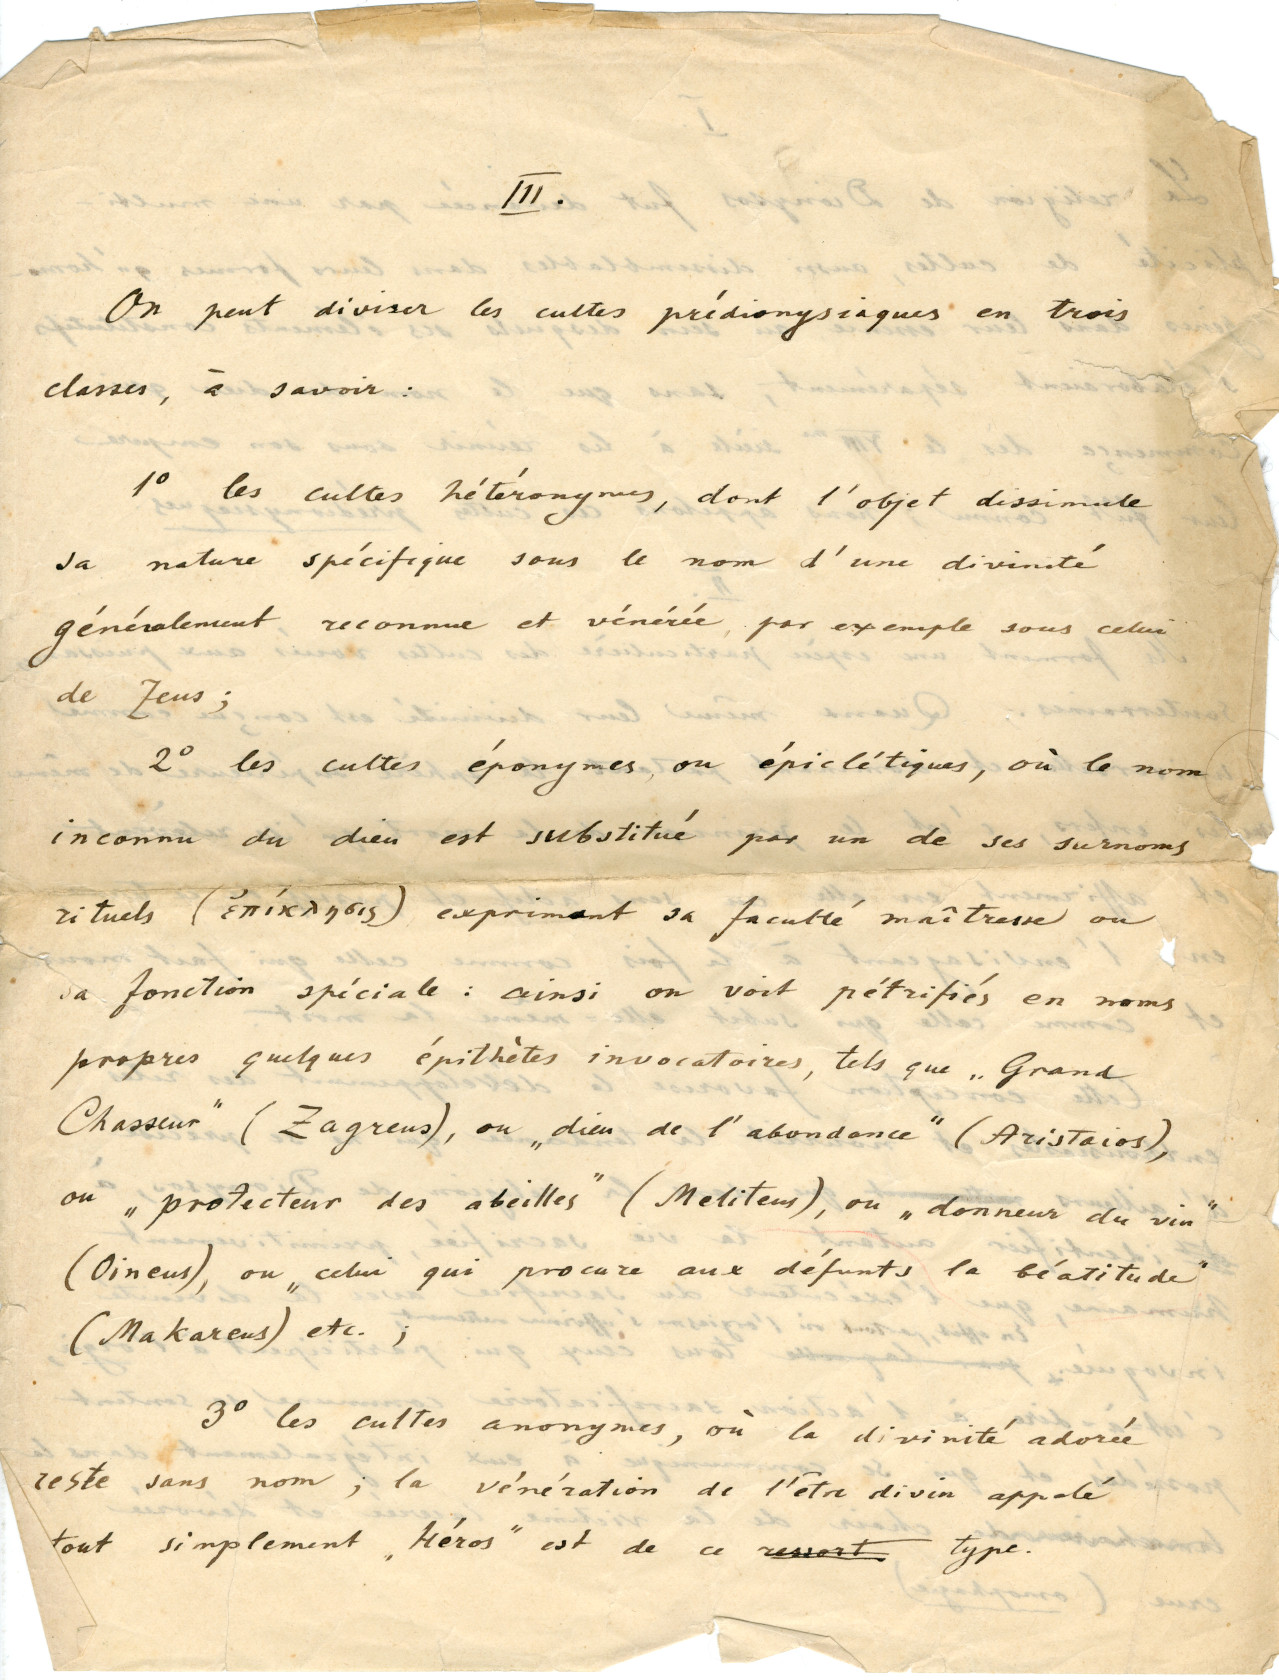 III.
On peut diviser les cultes prédionysiaques en trois
classes, à savoir :
1º les cultes hétéronymes, dont l'objet dissimule
sa nature spécifique sous le nom d'une divinité
généralement reconnue et vénérée, par exemple sous celui
de Zeus ;
2º les cultes éponymes, ou épiclétiques, où le nom
inconnu du dieu est substitué par un de ses surnoms
rituels (ἐπίκλησις) exprimant sa faculté maîtresse ou
sa fonction spéciale : ainsi on voit pétrifiés en noms
propres quelques épithètes invocatoires, tels que „Grand
Chasseur" (Zagreus), ou „dieu de l'abondance" (Aristaios),
ou „protecteur des abeilles" (Meliteus), ou „donneur du vin"
(Oineus), ou „celui qui procure aux défunts la béatitude"
(Makareus) etc. ;
3º les cultes anonymes, où la divinité adorée
reste sans nom ; la vénération de l'être divin appelé
tout simplement „Héros" est de ce ressort type.